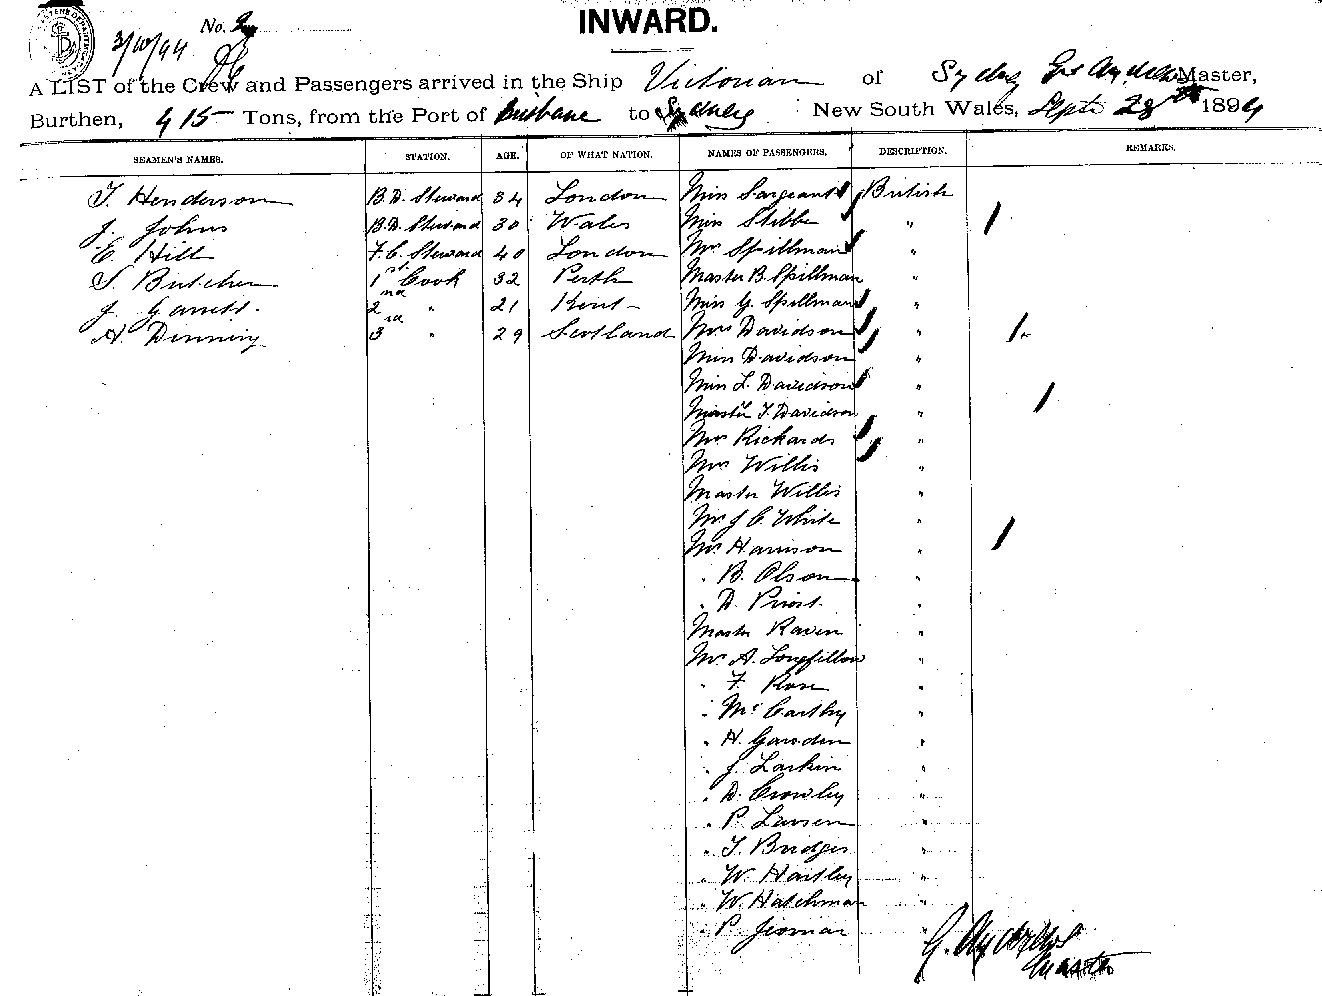 No. 2
3/10/94
INWARD.
A LIST of the Crew and Passengers arrived in the Ship Victorian of Sydney Master,
Burthen, 415 Tons, from the Port of Brisbane to Sydney New South Wales, Sept 28th 1894
SEAMEN'S NAMES. STATION. AGE. OF WHAT NATION. NAMES OF PASSENGERS. DESCRIPTION. REMARKS.
T. Henderson B.D. Steward 34 London Miss Sargeant British
J. Johns B.D. Steward 30 Wales Miss Stibbe "
E. Hill F.C. Steward 40 London Mr Spillman "
S. Butcher 1st Cook 32 Perth Master B. Spillman "
J. Garrett. 2nd " 21 Kent Miss G. Spillman "
A. Dinning 3rd " 29 Scotland Mrs Davidson "
Miss Davidson "
Miss L. Davidson "
Master T. Davidson "
Mrs Rickards "
Mrs Willis "
Master Willis "
Mr J C. White "
Mr Harrison "
" B. Olson "
" D. Priest. "
Master Raven "
Mr A. Longfellow "
" F. Rose "
" McCarthy "
" H. Gawden "
" J. Larkin "
" D. Crowley "
" P. Larsen "
" T. Bridges "
" W. Hartley "
" W. Hatchman "
" P. "
G. Master